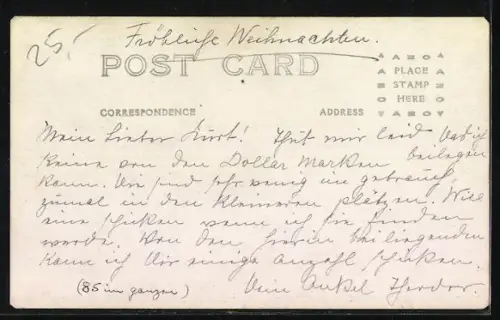 25,
Fröhliche Weihnachten.
POST CARD
AZO
PLACE
STAMP
HERE
AZO
CORRESPONDENCE
ADDRESS
Mein Lieber Kurt! Thut mir leid das ich
keine von den Dollar Marken beilegen
kann. Die sind sehr wenig im gebrauch
zumal in den kleineren plätzen. Will
eine schicken wenn ich sie finden
werde. Von den hierin beiliegenden
kann ich Dir einige anzahl schicken.
(85 im ganzen) Dein Onkel Theodor.